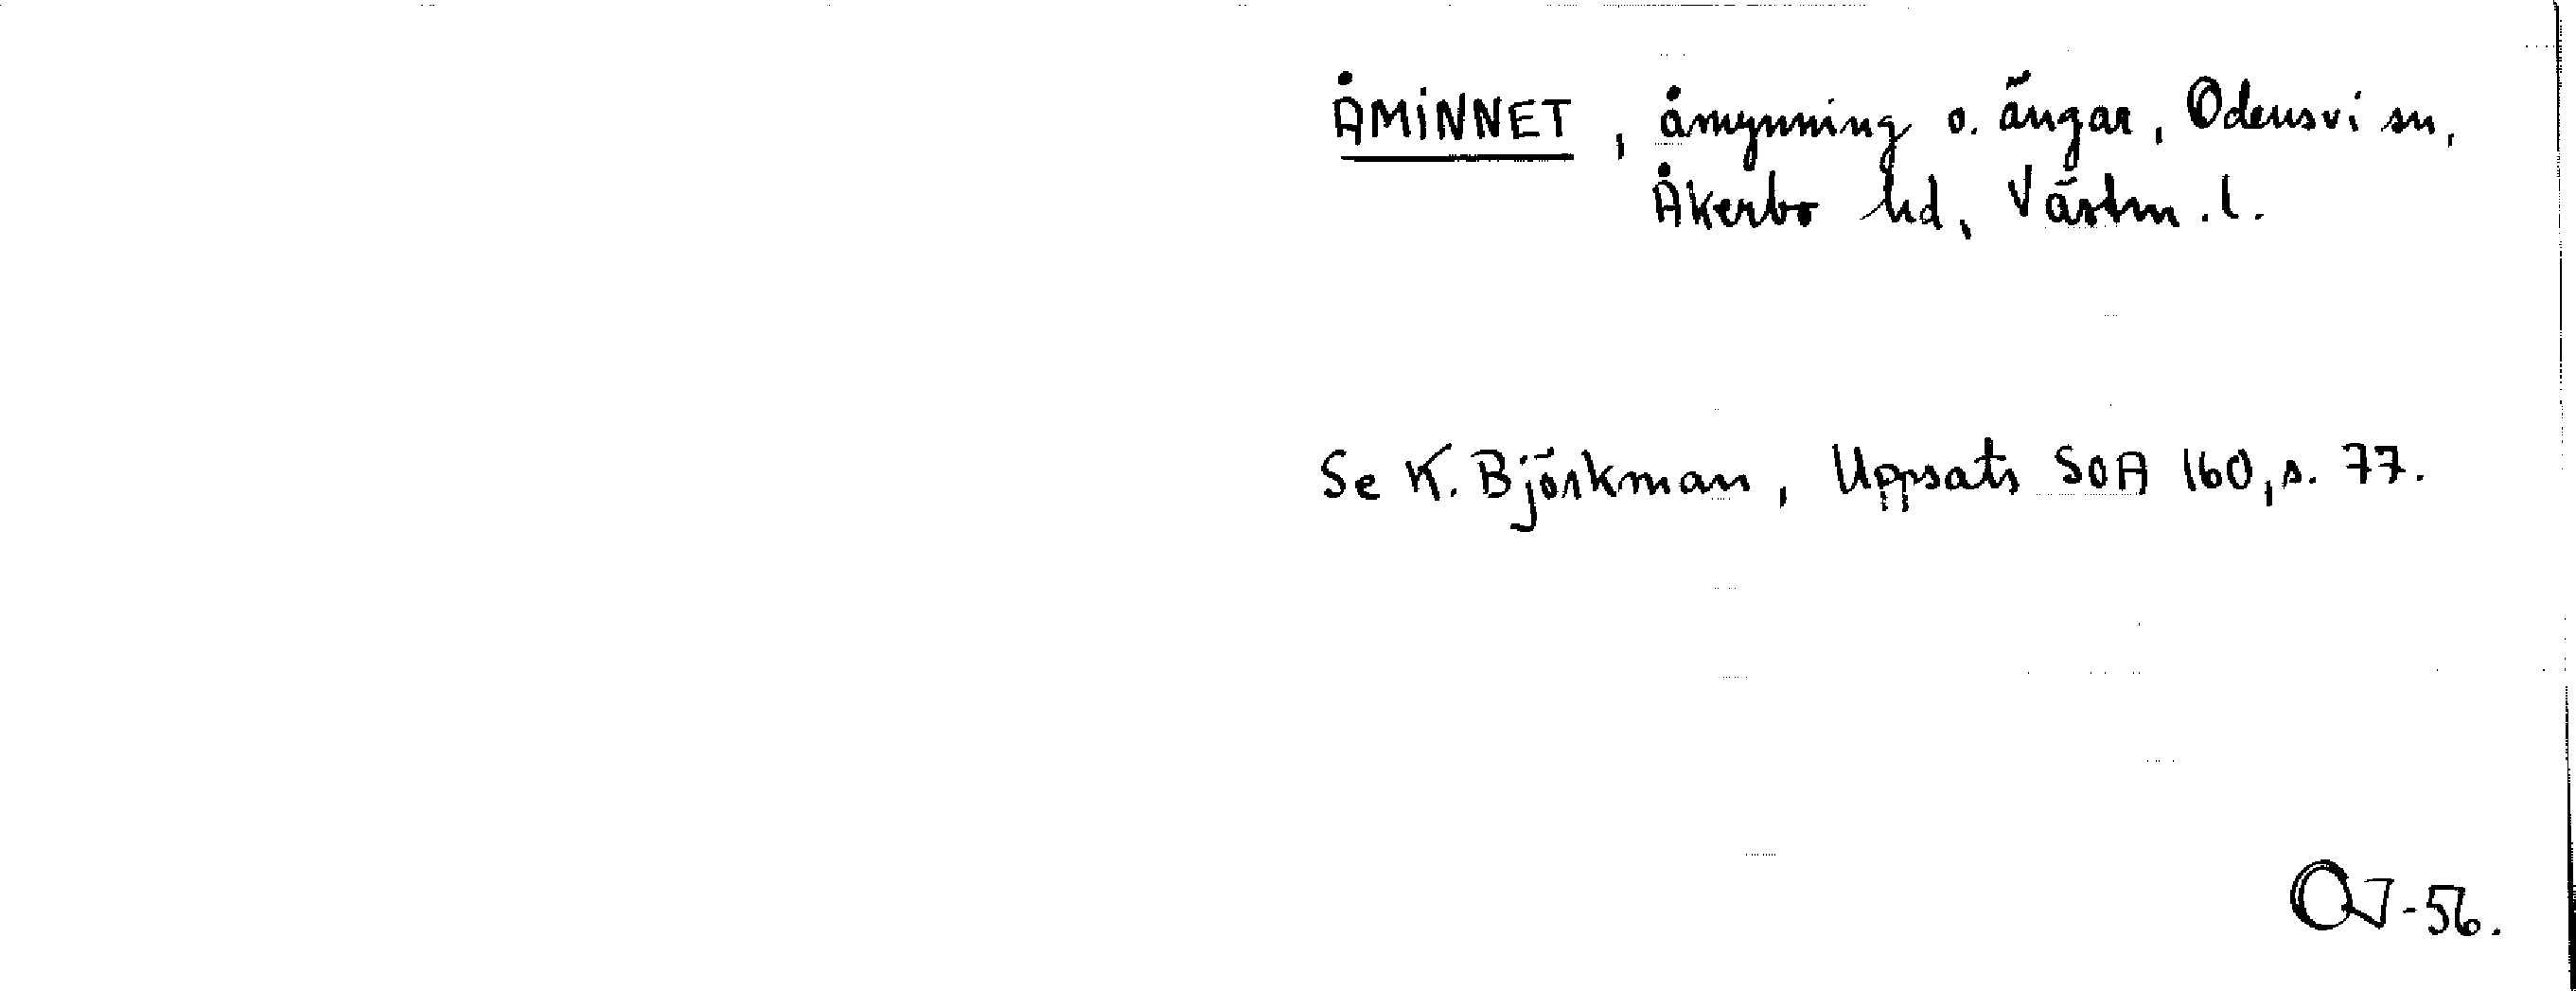 ÅMINNET, åmynning o. ängar, Odensvi sn,
Åkerbo hd, Västm. l.
Se K. Björkman, Uppsats SOA 160, s. 77.
OJ-56.